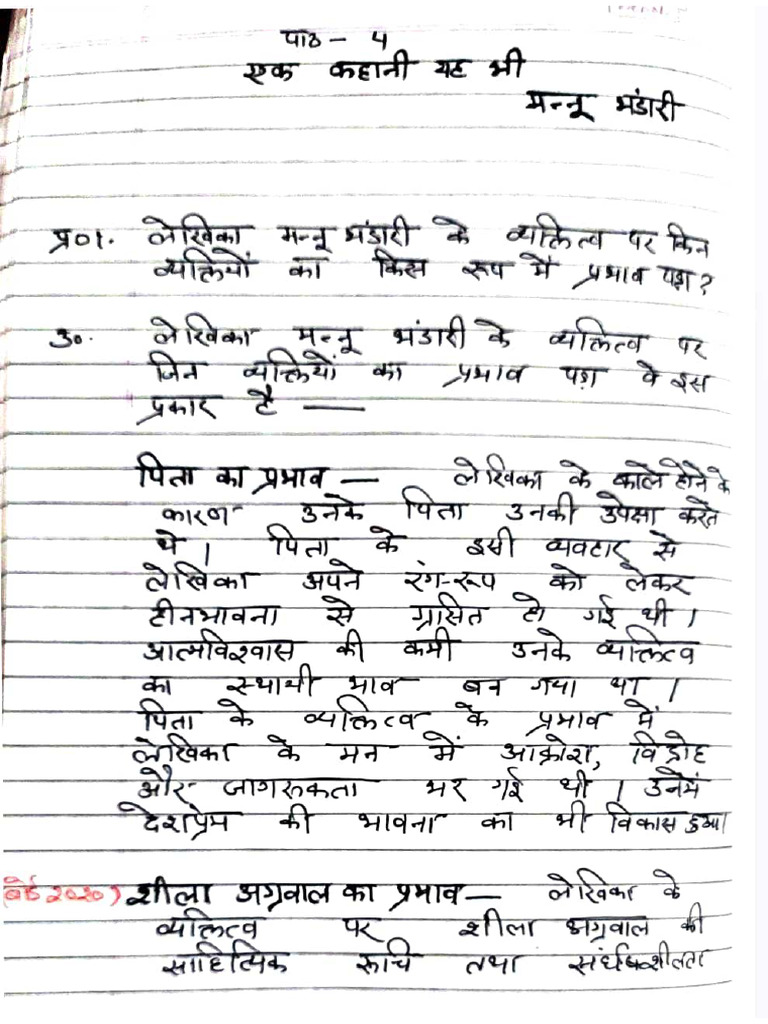 पाठ - 4
एक कहानी यह भी
मन्नू भंडारी
प्र०1. लेखिका मन्नू भंडारी के व्यक्तित्व पर किन
व्यक्तियों का किस रूप में प्रभाव पड़ा?
उ०. लेखिका मन्नू भंडारी के व्यक्तित्व पर
जिन व्यक्तियों का प्रभाव पड़ा वे इस
प्रकार है —
पिता का प्रभाव — लेखिका के काले होने के
कारण उनके पिता उनकी उपेक्षा करते
थे। पिता के इसी व्यवहार से
लेखिका अपने रंग-रूप को लेकर
हीनभावना से ग्रासित हो गई थी।
आत्मविश्वास की कमी उनके व्यक्तित्व
का स्थायी भाव बन गया था।
पिता के व्यक्तित्व के प्रभाव में
लेखिका के मन में आक्रोश, विद्रोह
और जागरुकता भर गई थी। उनमें
देशप्रेम की भावना का भी विकास हुआ
(बोर्ड 2020) शीला अग्रवाल का प्रभाव — लेखिका के
व्यक्तित्व पर शीला अग्रवाल की
साहित्यिक रूचि तथा संर्घषशीलता